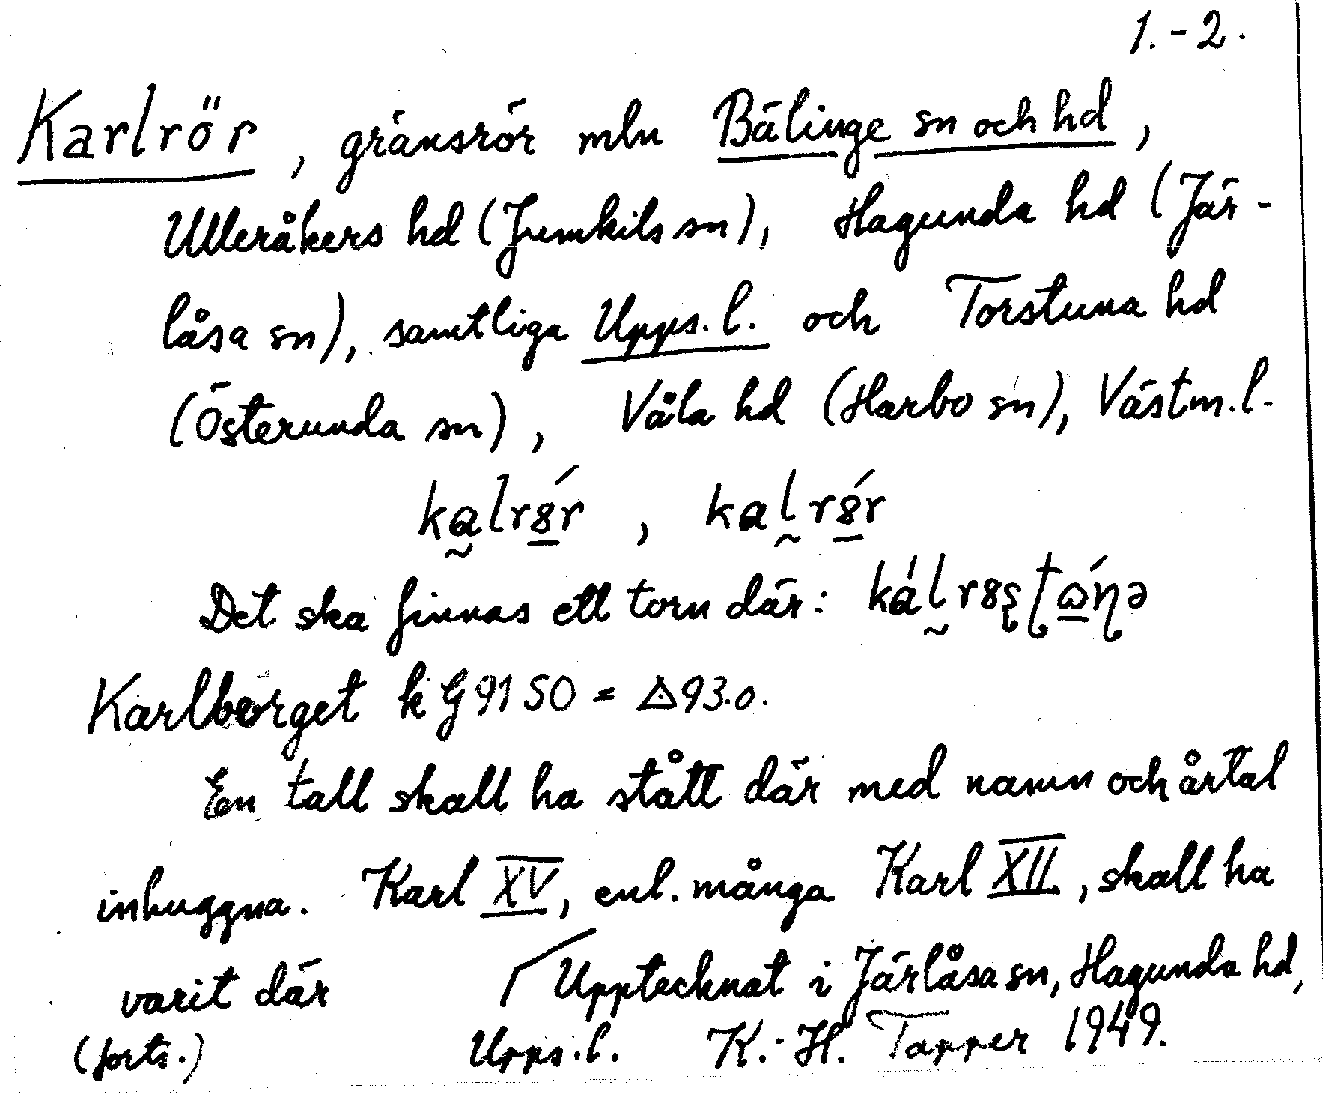 1.-2.
Karlrör, gränsrör mln Bälinge sn och hd,
Ulleråkers hd (Jumkils sn), Hagunda hd (Jär-
låsa sn), samtliga Upps.l. och Torstuna hd
(Österunda sn), Våla hd (Harbo sn), Västm.l.
Det ska finnas ett torn där:
Karlberget k G 91 50 = △93.0.
En tall skall ha stått där med namn och årtal
inhuggna. Karl XV, enl. många Karl XII, skall ha
varit där
Upptecknat i Järlåsa sn, Hagunda hd,
(forts.) Upps.l. K.-H. Tapper 1949.